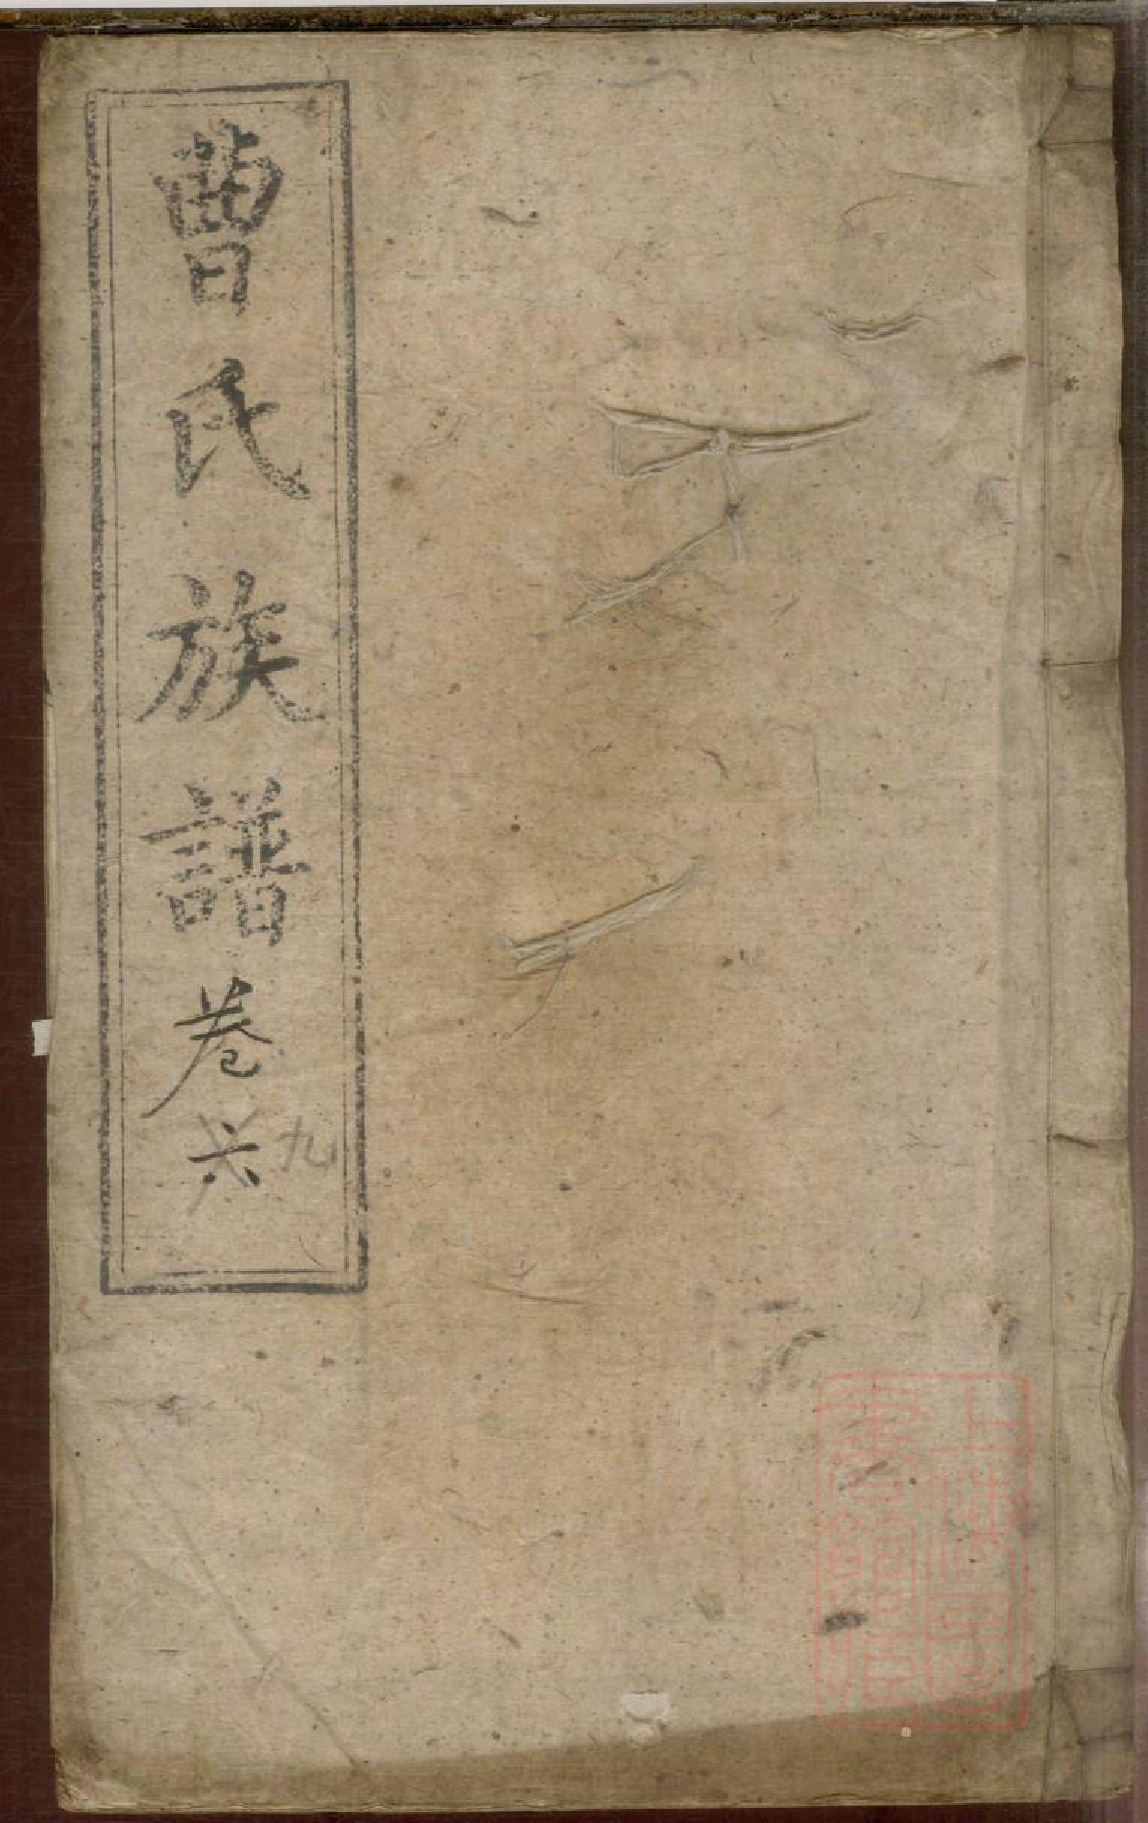 曹氏族譜卷六
九
上海圖書館藏